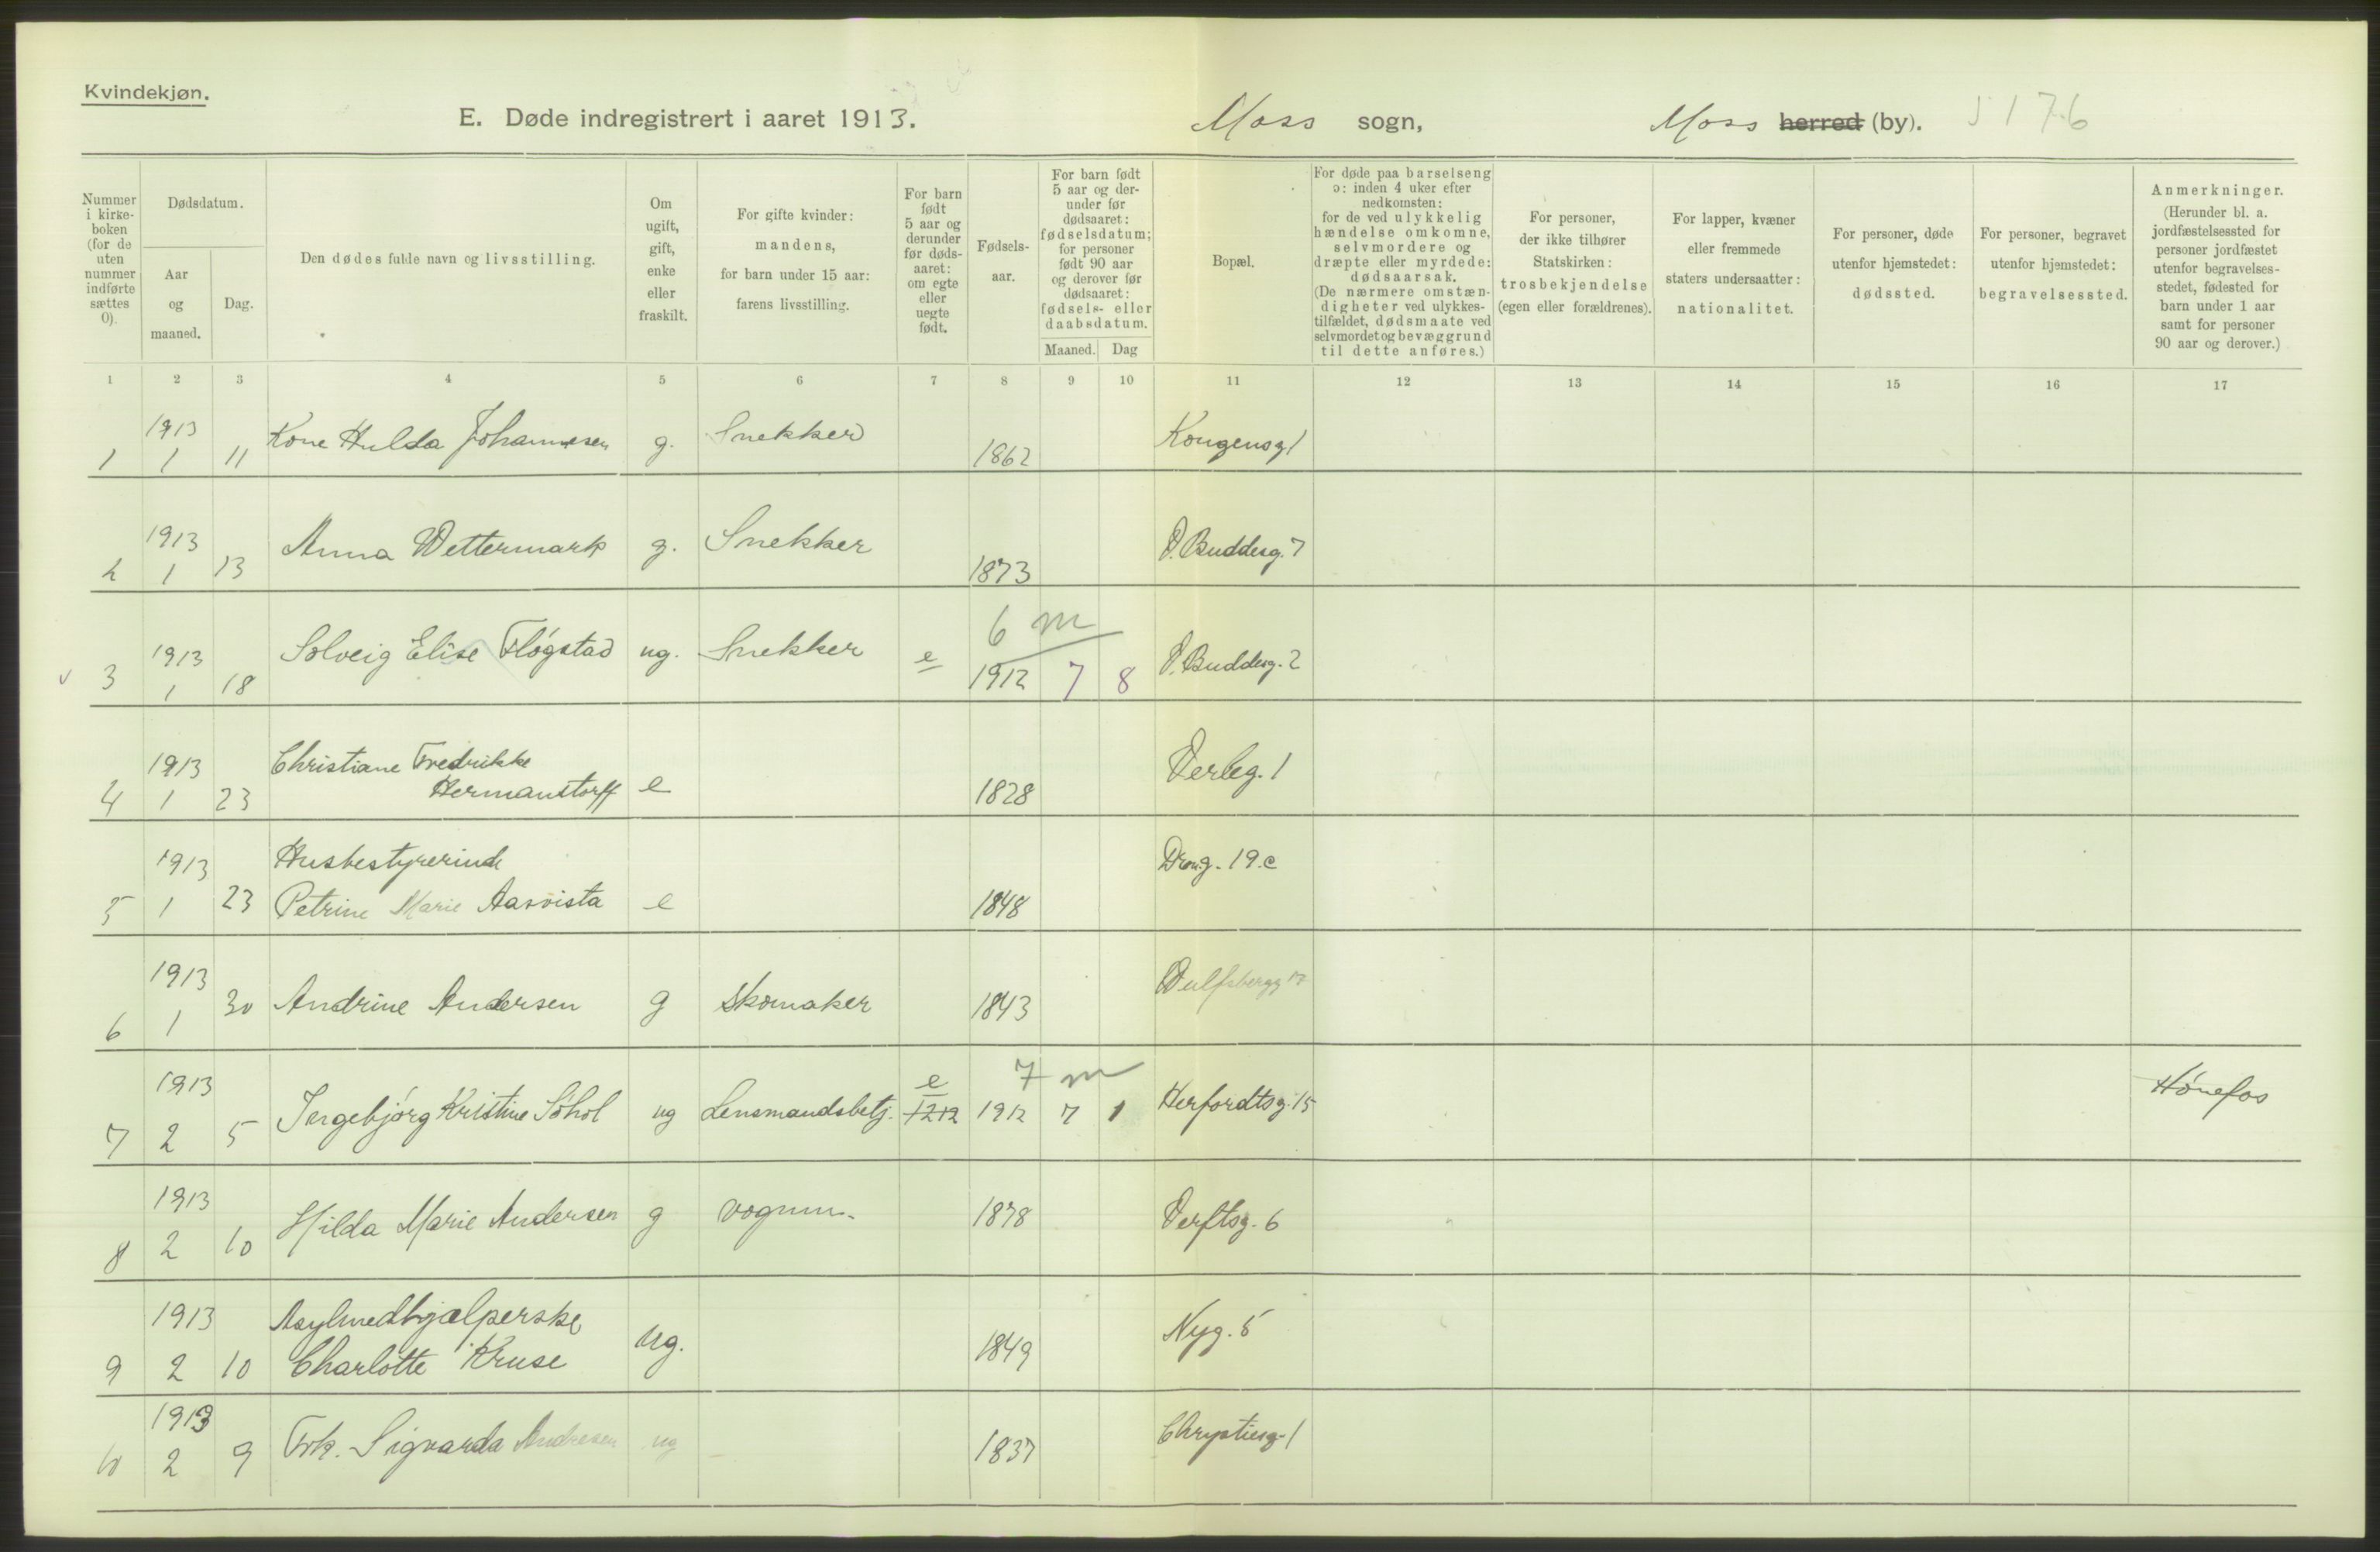 Kvindekjøn.
E. Døde indregistrert i aaret 1913. Moss sogn, Moss herred (by). 5176
Nummer i kirke-boken (for de uten nummer indførte sættes 0).
Dødsdatum.
Aar og maaned.
Dag.
Den dødes fulde navn og livsstilling.
Om ugift, gift, enke eller fraskilt.
For gifte kvinder: mandens, for barn under 15 aar: farens livsstilling.
For barn født 5 aar og derunder før døds-aaret: om egte eller uegte født.
Fødsels-aar.
For barn født 5 aar og der-under før dødsaaret: fødselsdatum; for personer født 90 aar og derover før dødsaaret: fødsels- eller daabsdatum.
Maaned. Dag
Bopæl.
For døde paa barselseng ɔ: inden 4 uker efter nedkomsten: for de ved ulykkelig hændelse omkomne, selvmordere og dræpte eller myrdede: dødsaarsak. (De nærmere omstæn-digheter ved ulykkes-tilfældet, dødsmaate ved selvmordet og bevæggrund til dette anføres.)
For personer, der ikke tilhører Statskirken: trosbekjendelse (egen eller forældrenes).
For lapper, kvæner eller fremmede staters undersaatter: nationalitet.
For personer, døde utenfor hjemstedet: dødssted.
For personer, begravet utenfor hjemstedet: begravelsessted.
Anmerkninger. (Herunder bl. a. jordfæstelsessted for personer jordfæstet utenfor begravelses-stedet, fødested for barn under 1 aar samt for personer 90 aar og derover.)
1 2 3 4 5 6 7 8 9 10 11 12 13 14 15 16 17
1 1913 1 11 Kone Hulda Johannesen g. Snekker 1862 Kongensg 1
2 1913 1 13 Anna Wettermark g. Snekker 1873 V. Buddesg. 7
6 m
3 1913 1 18 Solveig Elise Fløgstad ug. Snekker e 1912 7 8 V. Buddesg. 2
4 1913 1 23 Christiane Fredrikke
Hermanstorff e 1828 Verleg. 1
Husbestyrerinde
5 1913 1 23 Petrine Marie Aasvista e 1848 Dron.g. 19.c
6 1913 1 30 Andrine Andersen g Skomaker 1843 Wulfsbergg
e 7 m
7 1913 2 5 Ingebjørg Kristine Söhol ug Lensmandsbetj. 1212 1912 7 1 Herfordtsg. 15 Hönefos
8 1913 2 10 Hilda Marie Andersen g vognm. 1878 Verftsg. 6
Asylmedhjælperske
9 1913 2 10 Charlotte Kruse ug. 1849 Nyg. 5
10 1913 2 9 Frk. Sigvarda Andresen ug 1837 Chrystiesg 1